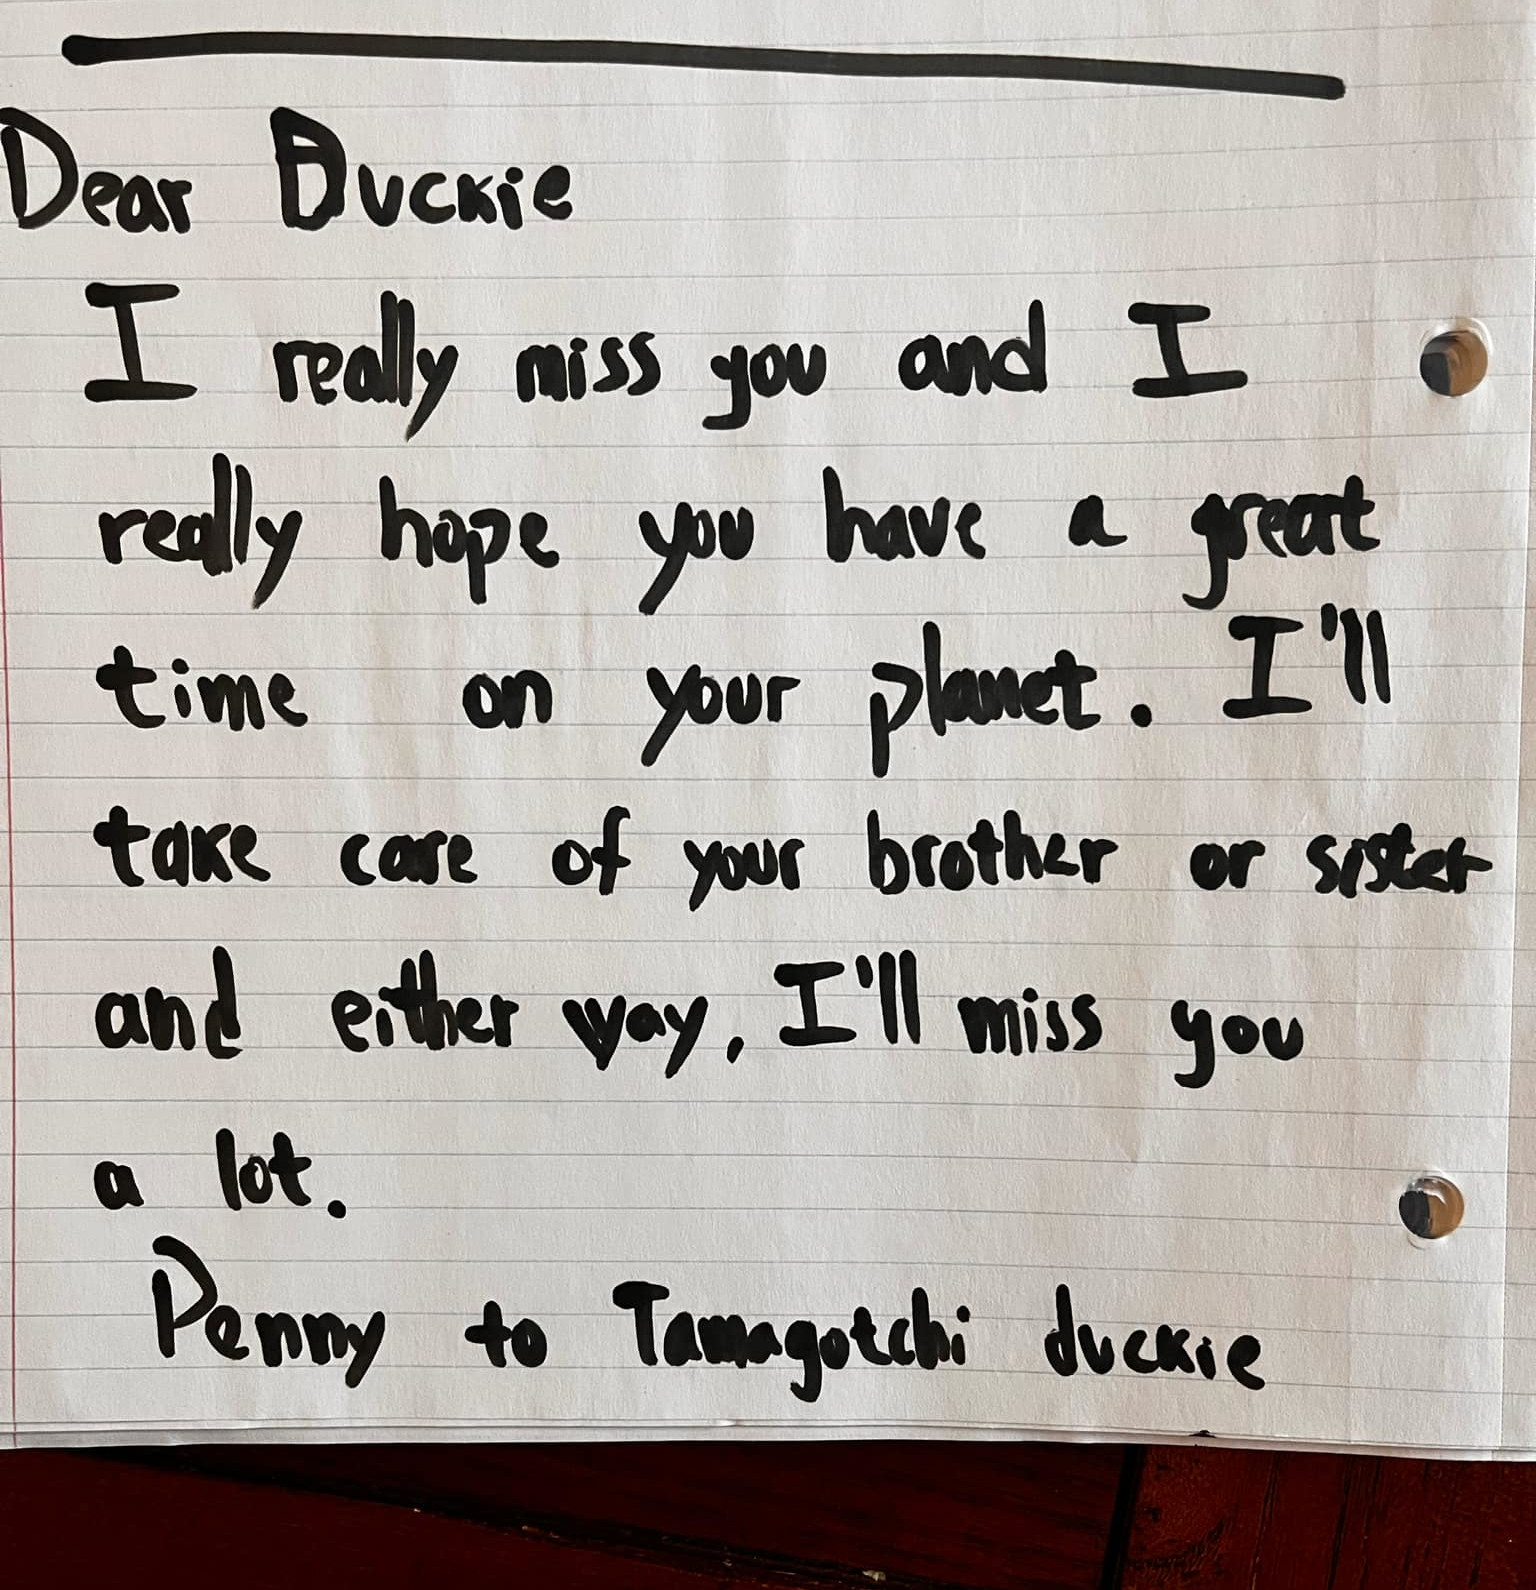 Dear Duckie
I really miss you and I
really hope you have a great
time on your planet. I'll
take care of your brother or sister
and either way, I'll miss you
a lot.
Penny to Tamagotchi duckie